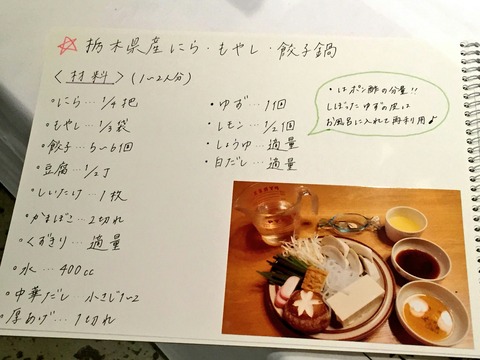 ☆ 栃木県産にら・もやし・餃子鍋
〈材料〉(1〜2人分)
◦にら…1/4把
◦もやし…1/3袋
◦餃子…5〜6個
◦豆腐…1/2丁
◦しいたけ…1枚
◦かまぼこ…2切れ
◦くずきり…適量
◦水…400cc
◦中華だし…小さじ1〜2
◦厚あげ…1切れ
・ゆず…1個
・レモン…1/2個
・しょうゆ…適量
・白だし…適量
・はポン酢の分量!!
しぼったゆずの皮は
お風呂に入れて再利用♪